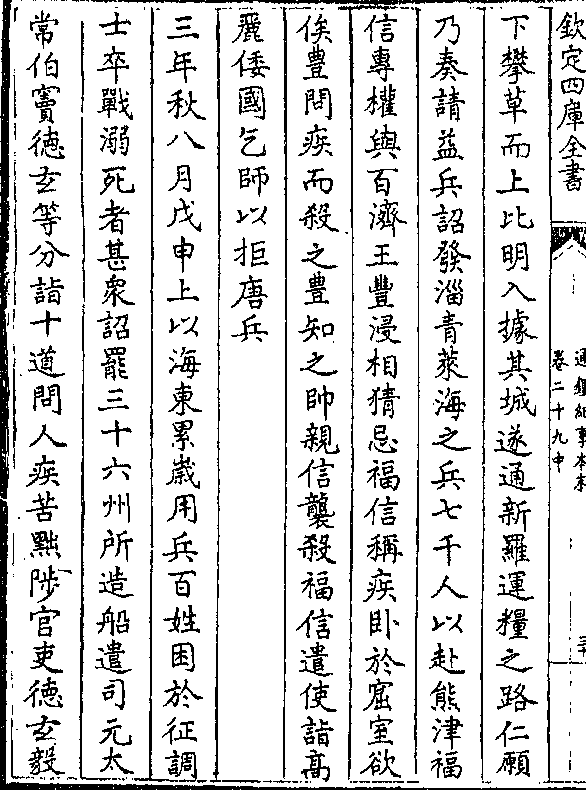 欽定四庫全書
通鑑紀事本末
卷二十九中
下攀草而上比明入據其城遂通新羅運糧之路仁願
乃奏請益兵詔發淄青萊海之兵七千人以赴熊津福
信專權與百濟王豐浸相猜忌福信稱疾卧於窟室欲
俟豐問疾而殺之豐知之帥親信襲殺福信遣使詣高
麗倭國乞師以拒唐兵
三年秋八月戊申上以海東累歲用兵百姓困於征調
士卒戰溺死者甚衆詔罷三十六州所造船遣司元太
常伯竇德玄等分詣十道問人疾苦黜陟官吏德玄毅